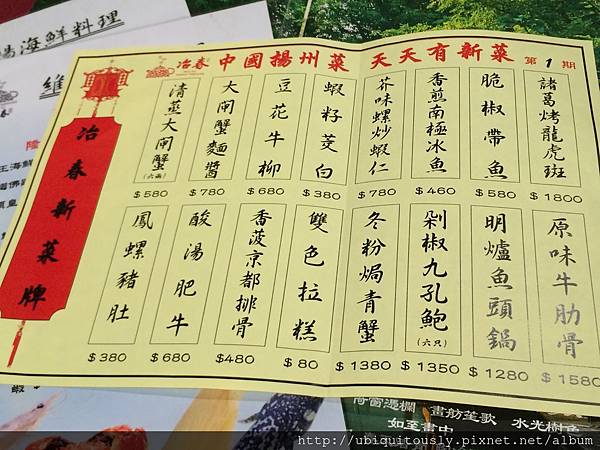 冶春 中國揚州菜 天天有新菜 第1期
冶春新菜牌
諸葛烤龍虎斑
$1800
脆椒帶魚
$580
香煎南極冰魚
$460
芥味螺炒蝦仁
$780
蝦籽茭白
$380
豆花牛柳
$680
大閘蟹麵醬
$780
清蒸大閘蟹
(六兩)
$580
原味牛肋骨
$1580
明爐魚頭鍋
$1280
剁椒九孔鮑
(六只)
$1350
冬粉焗青蟹
$1380
雙色拉糕
$80
香菠京都排骨
$480
酸湯肥牛
$680
鳳螺豬肚
$380
海鮮料理
維
隆
王海鮮
畫舫笙歌
水光樹色
如至畫中
http://ubiquitously.pixnet.net/album